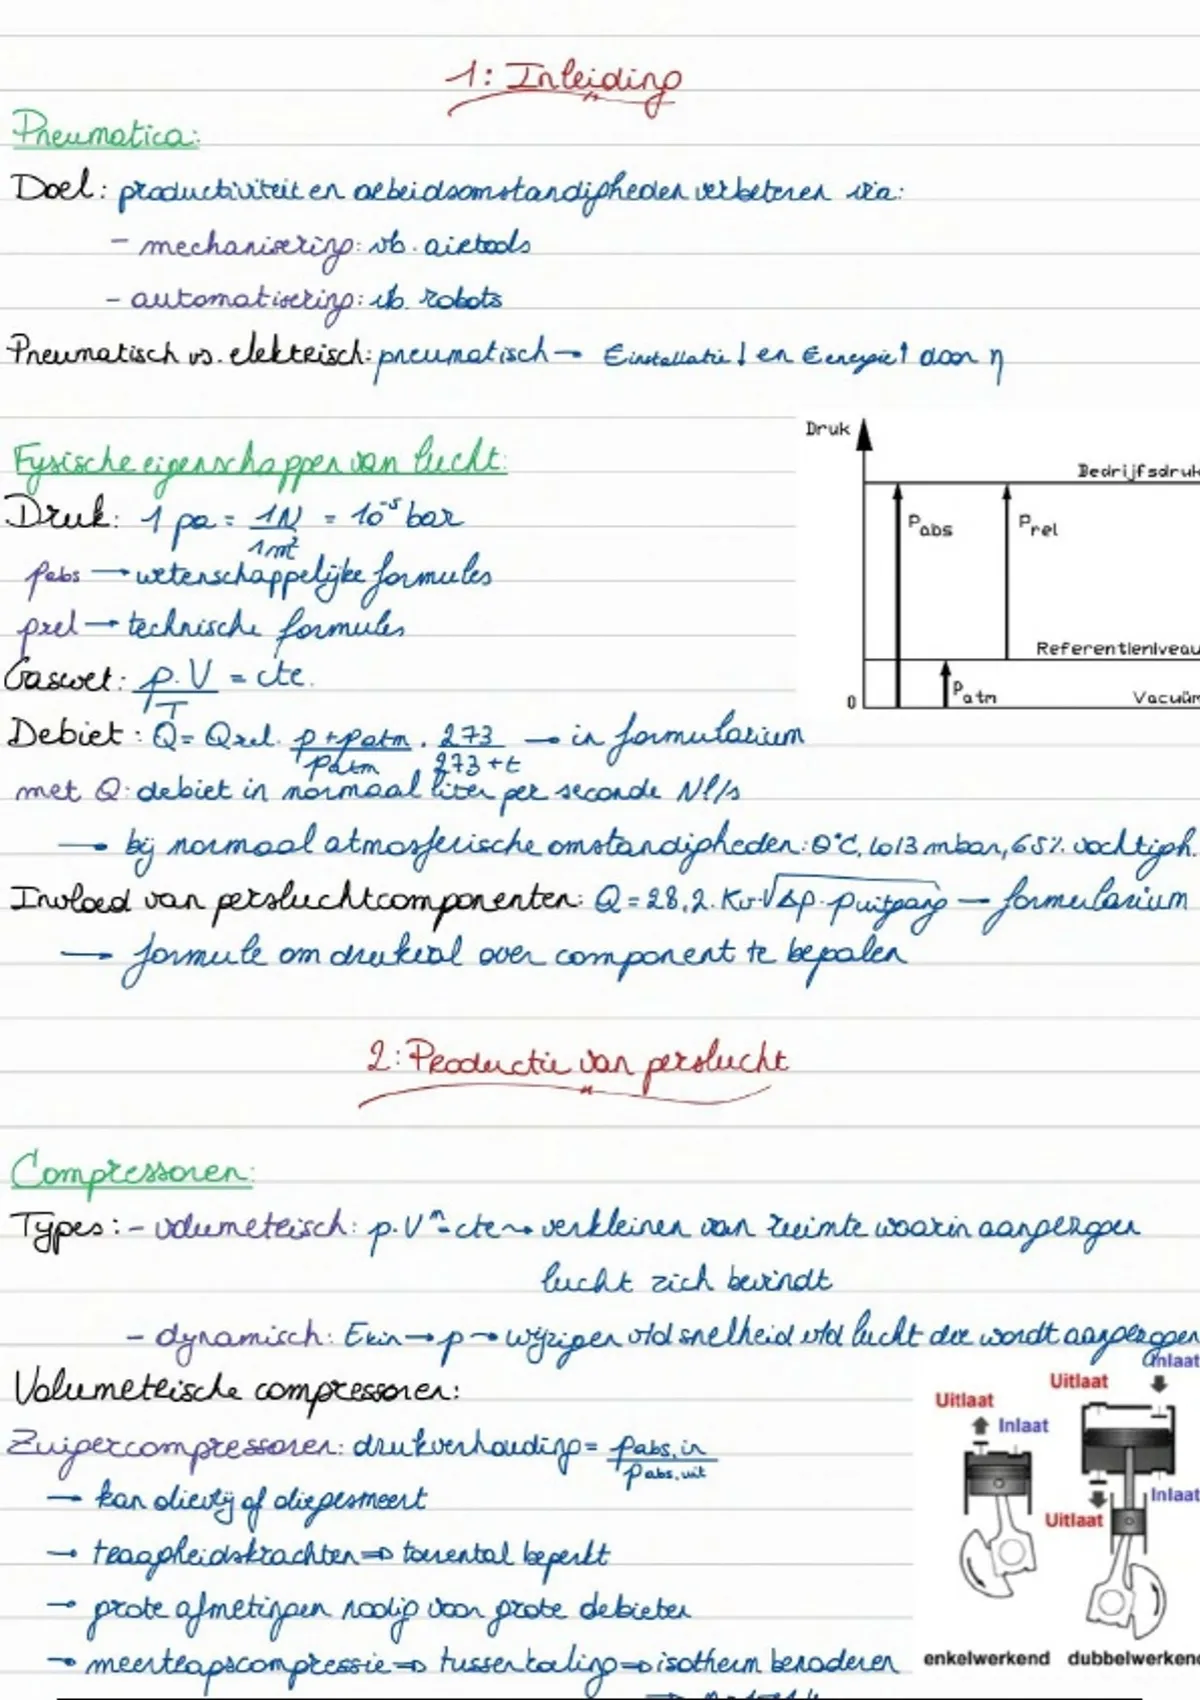 1: Inleiding
Pneumatica:
Doel: productiviteit en arbeidsomstandigheden verbeteren via:
- mechanisering: vb. airtools
- automatisering: vb. robots
Pneumatisch vs. elektrisch: pneumatisch → €installatie ↓ en €energie ↑ door η
Fysische eigenschappen van lucht:
Druk: 1 pa = 1N/1m² = 10⁻⁵ bar
pabs → wetenschappelijke formules
prel → technische formules
Gaswet: p.V/T = cte.
Debiet: Q = Qrel. p+patm/patm . 273/273+t → in formularium
met Q: debiet in normaal liter per seconde Nl/s
→ bij normaal atmosferische omstandigheden: 0°C, 1013 mbar, 65% vochtigh.
Invloed van persluchtcomponenten: Q = 28,2. Kv.√Δp. puitgang → formularium
→ formule om drukval over component te bepalen
Druk
Bedrijfsdruk
Pabs
Prel
Referentieniveau
Patm
0
Vacuüm
2: Productie van perslucht
Compressoren:
Types: - volumetrisch: p.Vⁿ = cte → verkleinen van ruimte waarin aangezogen
lucht zich bevindt
- dynamisch: Ekin → p → wijzigen v/d snelheid v/d lucht die wordt aangezogen
Volumetrische compressoren:
Zuigercompressoren: drukverhouding = pabs,in/pabs,uit
→ kan olievrij of oliegesmeert
→ traagheidskrachten ⇒ toerental beperkt
→ grote afmetingen nodig voor grote debieten
→ meertrapscompressie ⇒ tussenkoeling ⇒ isotherm benaderen
Uitlaat
Inlaat
Uitlaat
Inlaat
Uitlaat
Inlaat
enkelwerkend dubbelwerkend